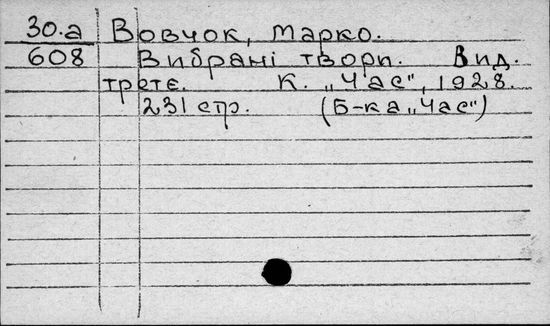 30.а Вовчок, Марко.
608 Вибрані твори. Вид.
третє. К. „Час", 1928.
231 стр. (Б-ка „Час")